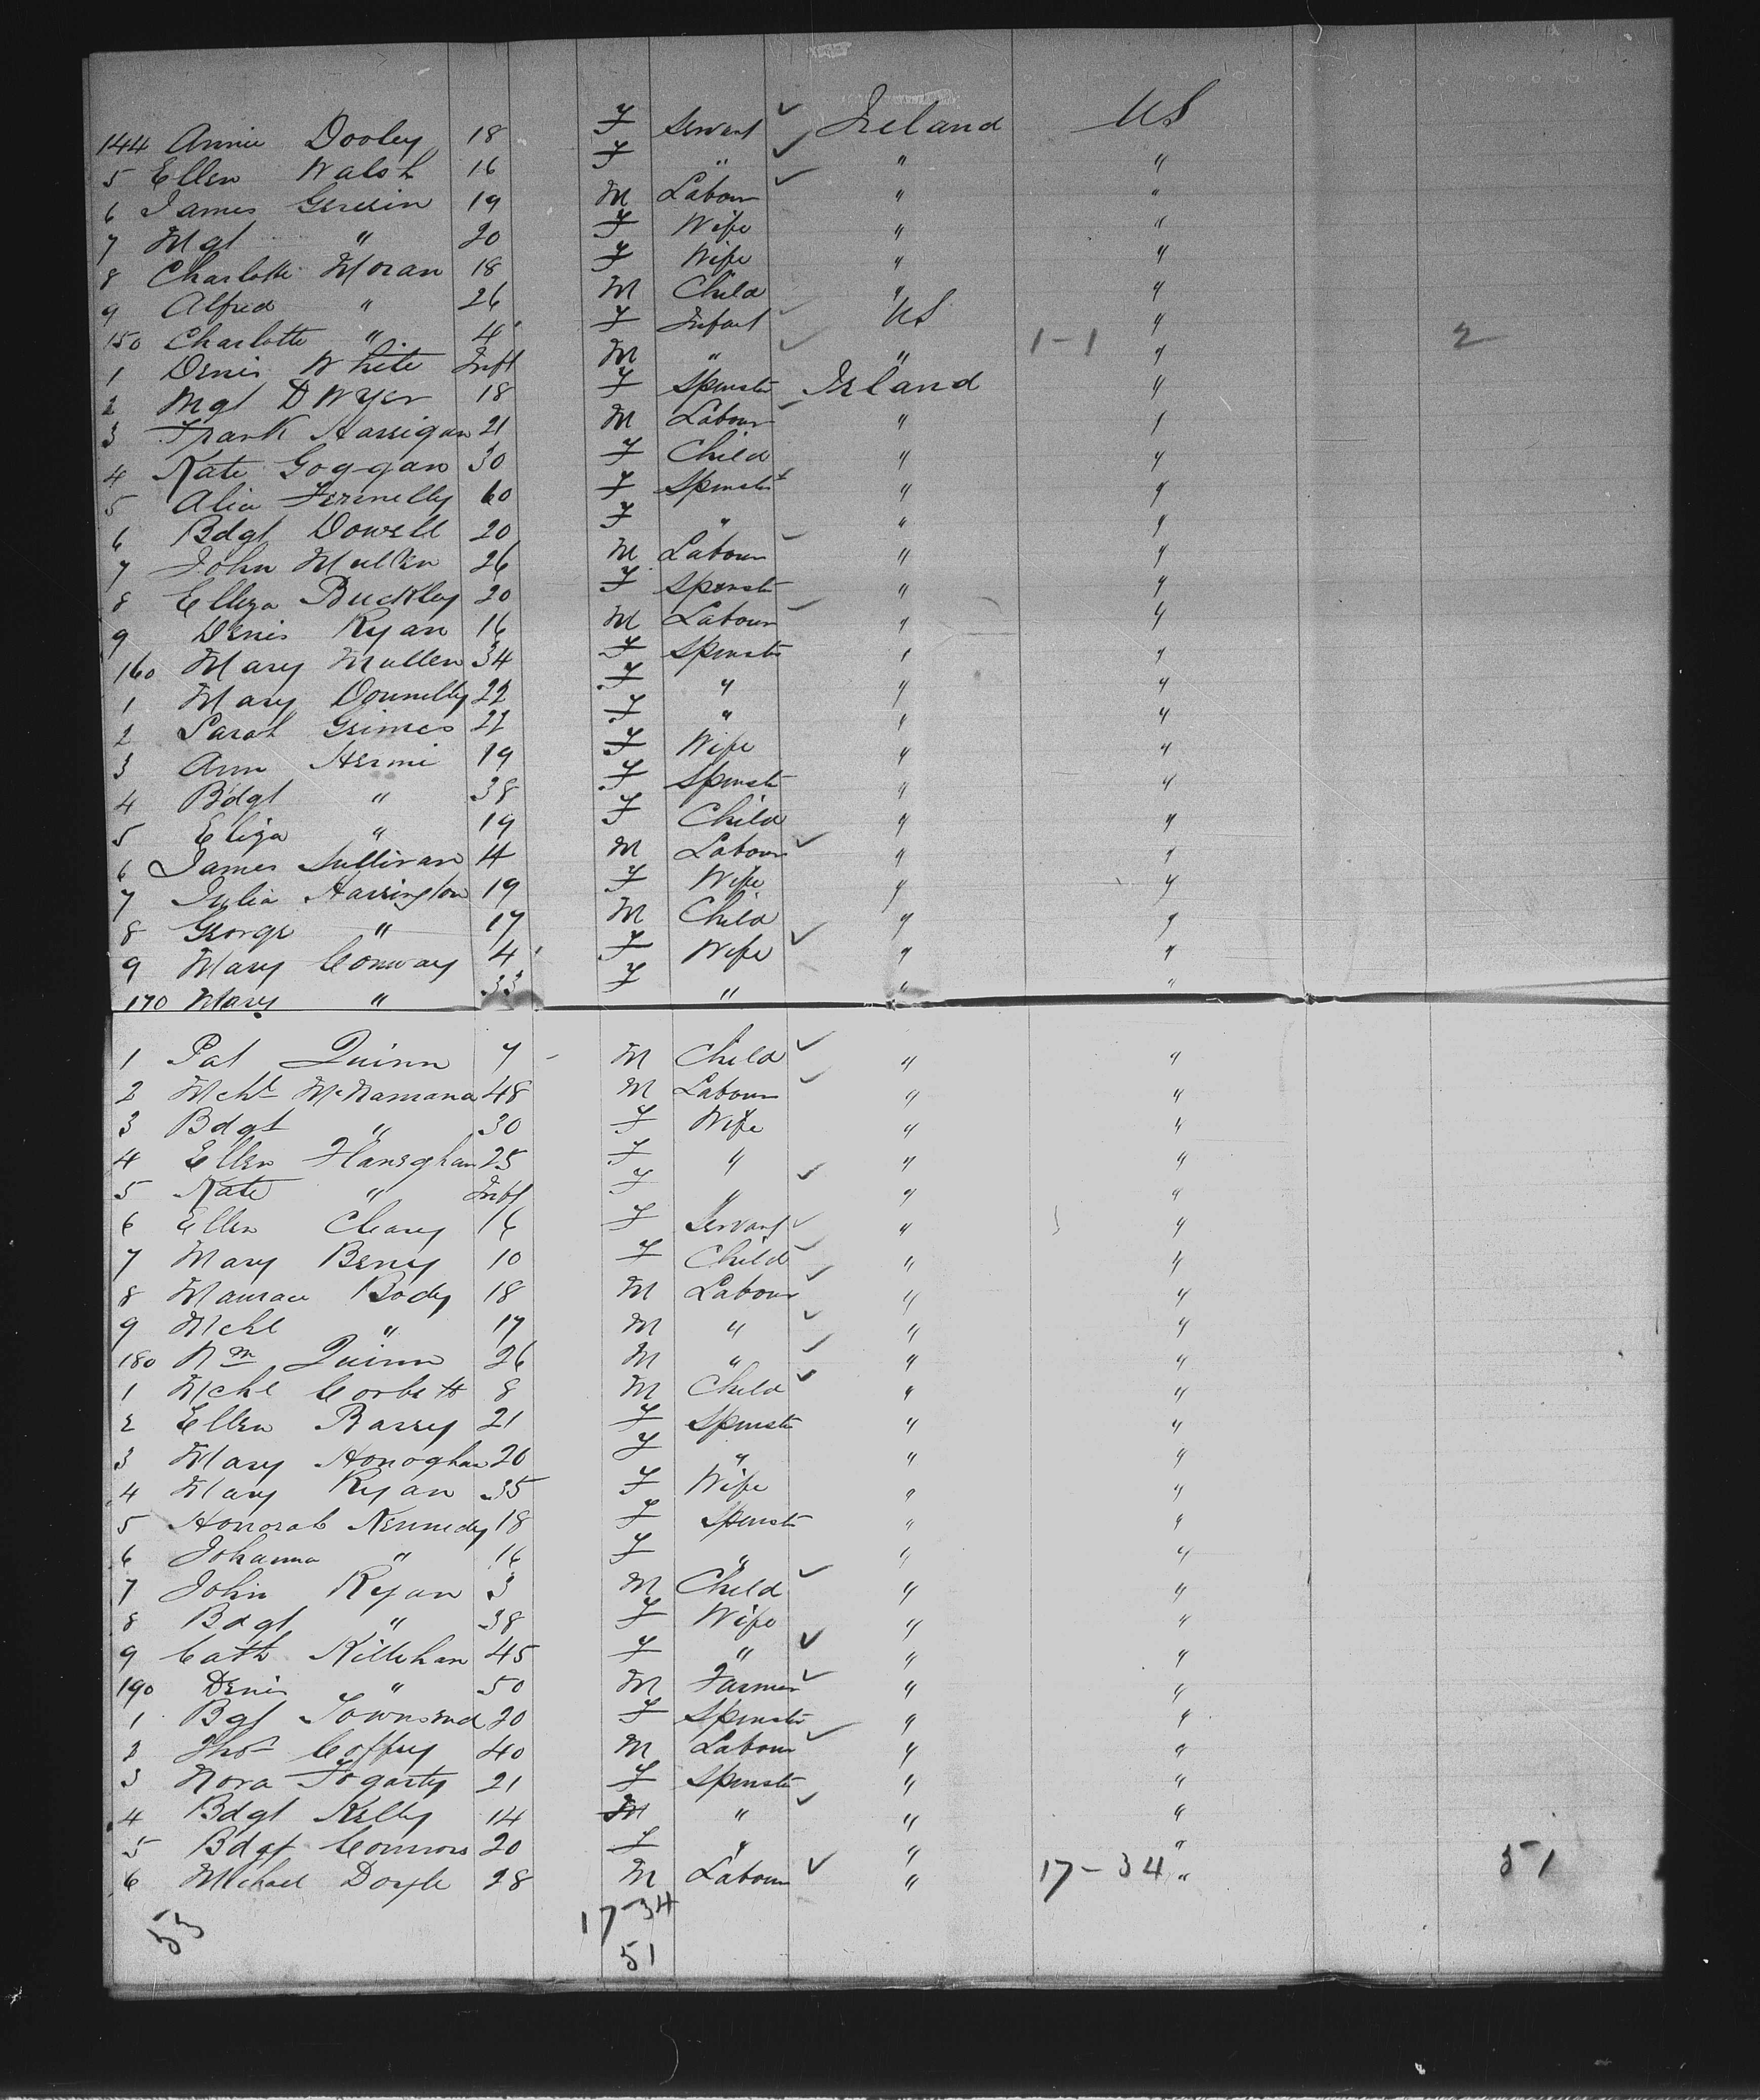 144 Annie Dooley 18 F Servant ✓ Ireland US
5 Ellen Walsh 16 F " ✓ " "
6 James 19 M Labour ✓ " "
7 Mgt " 20 F Wife " "
8 Charlotte Moran 18 F Wife " "
9 Alfred " 26 M Child " "
150 Charlotte " 4 F Infant ✓ US "
1 Denis White Inft M " ✓ " 1-1 " 2
2 Mgt Dwyer 18 F Spinster Ireland "
3 Frank Harrigan 21 M Labour " "
4 Kate Goggan 30 F Child " "
5 Alice Fennelly 60 F Spinster " "
6 Bdgt Dowell 20 F " " "
7 John Mullen 26 M Labour " "
8 Elliza Buckley 20 F Spinster " "
9 Denis Ryan 16 M Labour ✓ " "
160 Mary Mullen 34 F Spinster " "
1 Mary Donnelly 22 F " " "
2 Sarah Grimes 22 F " " "
3 Ann 19 F Wife " "
4 Bdgt " 38 F Spinst " "
5 Eliza " 19 F Child " "
6 James Sullivan 4 M Labour ✓ " "
7 Julia Harrington 19 F Wife " "
8 George " 17 M Child " "
9 Mary Conway 4 F Wife ✓ " "
170 Mary " 33 F " " "
1 Pat Quinn 7 - M Child ✓ " "
2 Mchl McNamara 48 M Labour ✓ " "
3 Bdgt " 30 F Wife " "
4 Ellen Haneghan 25 F " " "
5 Kate " Inft F " ✓ " "
6 Ellen Cleary 16 F Servant ✓ " "
7 Mary Berry 10 F Child ✓ " "
8 Maurace Body 18 M Labour ✓ " "
9 Mchl " 17 M " ✓ " "
180 Wm Quinn 26 M " ✓ " "
1 Mchl Corbett 8 M Child ✓ " "
2 Ellen Barry 21 F Spinster " "
3 Mary Honoghan 20 F " " "
4 Mary Ryan 35 F Wife " "
5 Honorah Kennedy 18 F Spinst " "
6 Johanna " 16 F " " "
7 John Ryan 3 M Child ✓ " "
8 Bdgt " 38 F Wife " "
9 Cath Killehan 45 F " ✓ " "
190 Denis " 50 M Farmer ✓ " "
1 Bgt Townsend 20 F Spinster " "
2 Thos Coffey 40 M Labour ✓ " "
3 Nora Fogarty 21 F Spinster " "
4 Bdgt Kelly 14 " ✓ " "
5 Bdgt Connors 20 F " " "
6 Michael Doyle 28 M Labour ✓ " 17-34 " 51
53 17-34
51